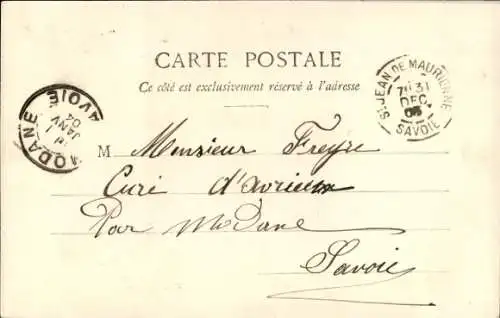 CARTE POSTALE
Ce côté est exclusivement réservé à l'adresse
ST JEAN DE MAURIENNE
7H 31
DEC
03
SAVOIE
MODANE
SAVOIE
1
JANV
04
M Monsieur Freyre
Curé d'avrieux
Par Modane
Savoie